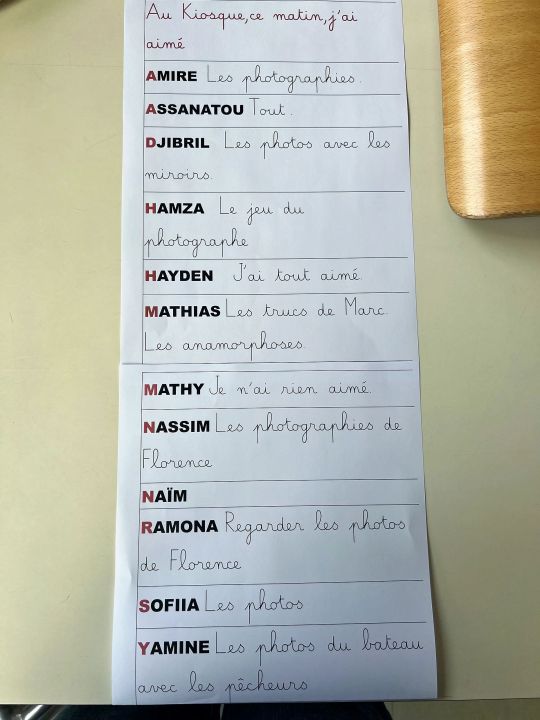 Au Kiosque,ce matin,j'ai
aimé
AMIRE Les photographies.
ASSANATOU Tout.
DJIBRIL Les photos avec les
miroirs.
HAMZA Le jeu du
photographe
HAYDEN J'ai tout aimé.
MATHIAS Les trucs de Marc.
Les anamorphoses.
MATHY Je n'ai rien aimé.
NASSIM Les photographies de
Florence
NAÏM
RAMONA Regarder les photos
de Florence
SOFIIA Les photos
YAMINE Les photos du bateau
avec les pêcheurs